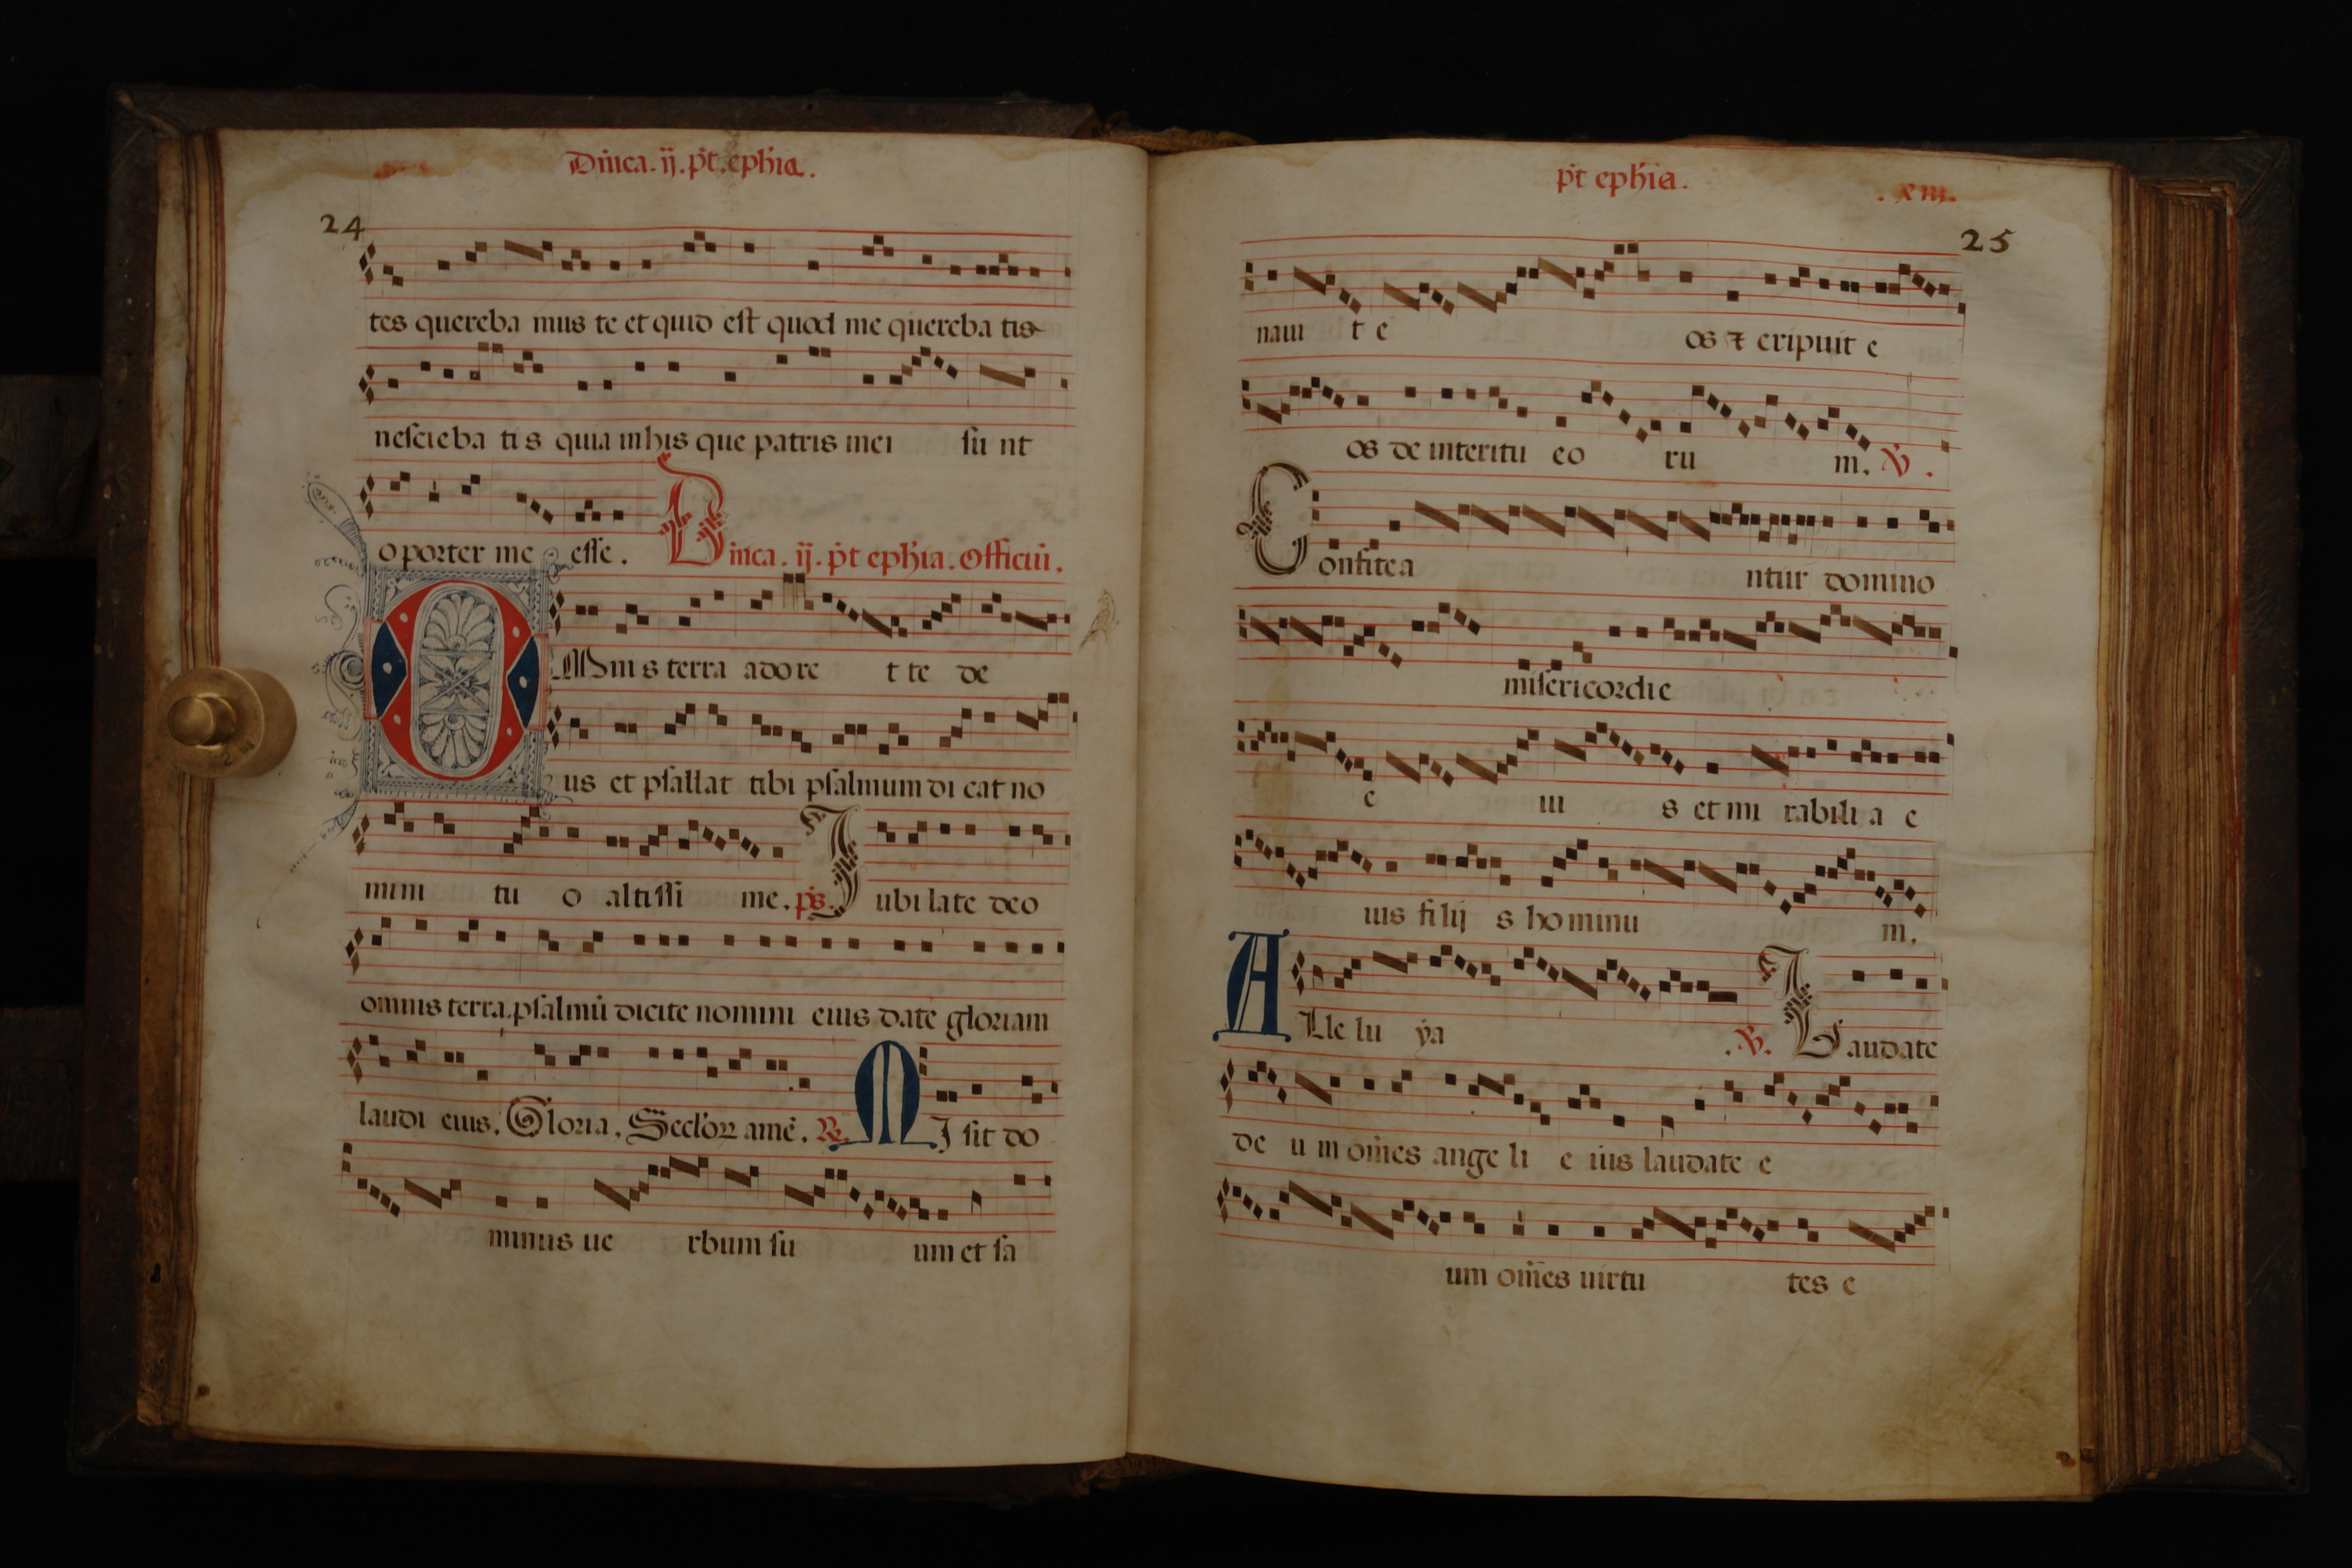 Dñica. ij. pt̄. eph̄ia.
24
tes quereba mus te et quid est quod me quereba tis
nescieba tis quia in his que patris mei su nt
oportet me esse. Dñica. ij. pt̄ eph̄ia. Officiū.
OMnis terra adore t te de
us et psallat tibi psalmum di cat no
mini tu o altissi me. ps̄. Iubilate deo
omnis terra psalmū dicite nomini eius date gloriam
laudi eius. Gloria. Seclor̄ amē. R. MIsit do
minus ue rbum su um et sa
pt̄ eph̄ia.
25
naui t e os ⁊ eripuit e
os de interitu eo ru m. V.
Confitea ntur domino
misericordie
e iu s et mi rabili a e
ius filij s hominu m.
ALle lu ya V. Laudate
de u m om̄es ange li e ius laudate e
um om̄es uirtu tes e